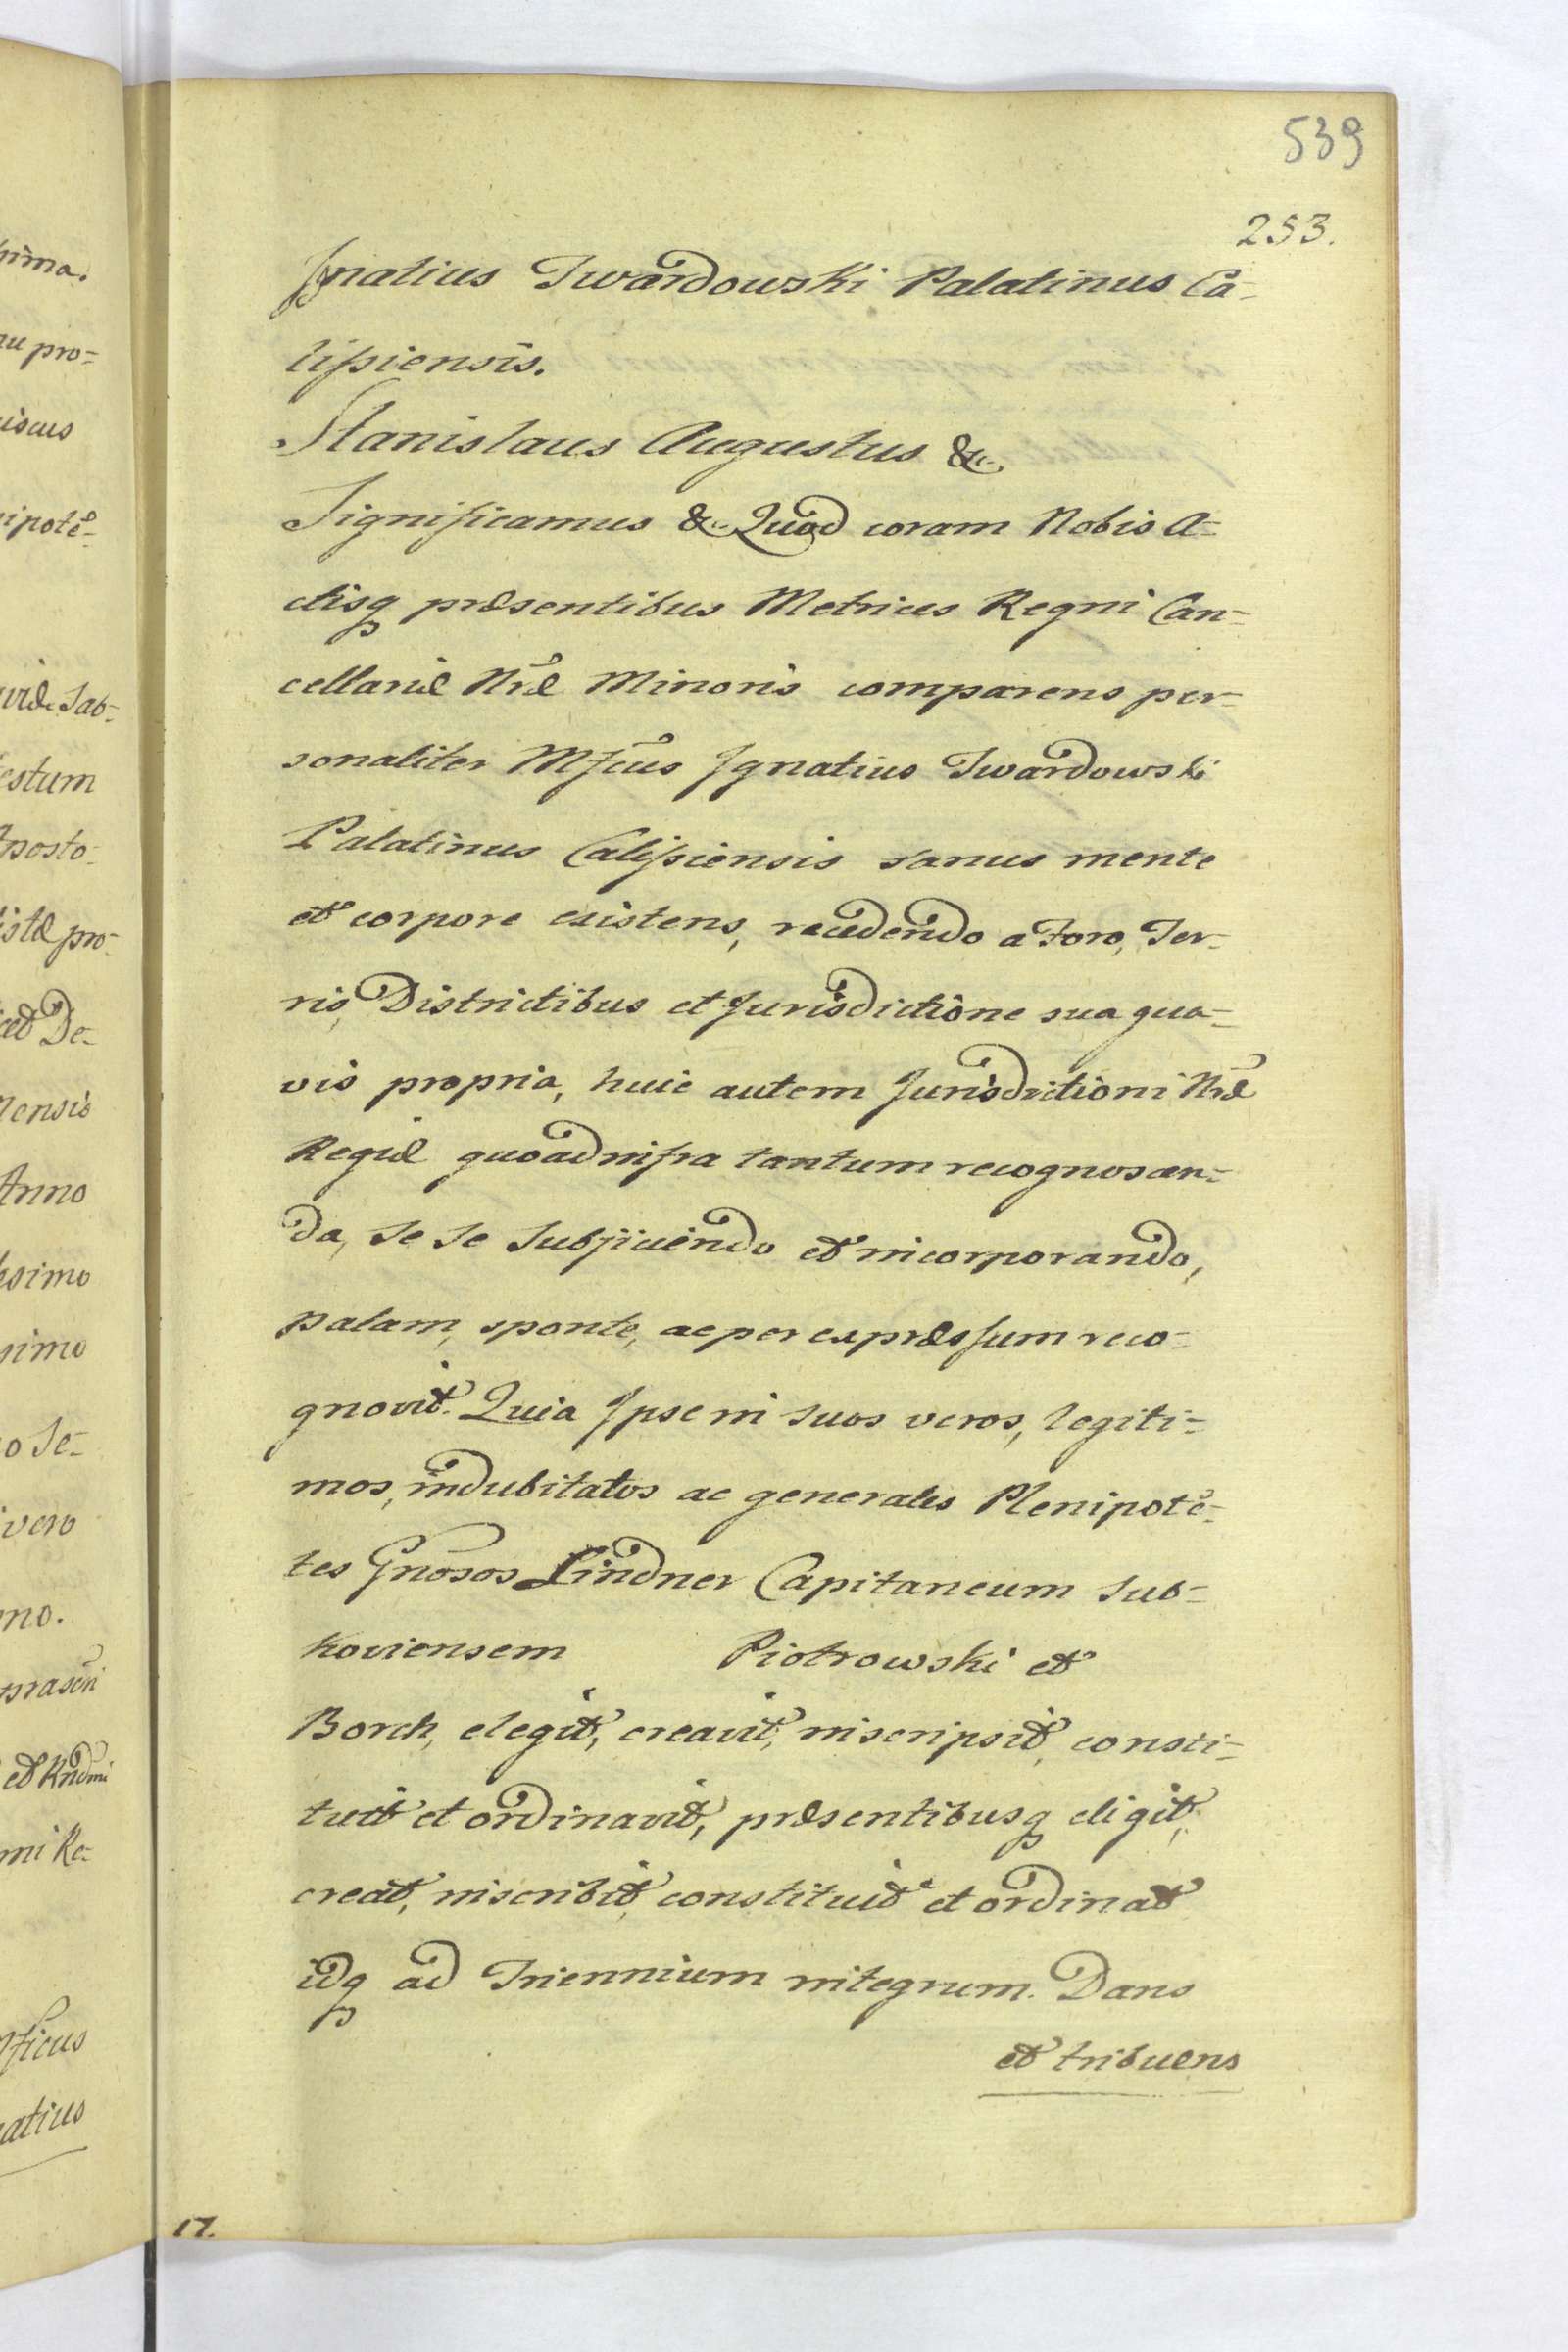 539
253.
Ignatius Twardowski Palatinus Ca-
lissiensis.
Stanislaus Augustus &c
Significamus &c Quod coram Nobis A-
ctisq præsentibus Metrices Regni Can-
cellariæ Nræ Minoris comparens per-
sonaliter Mfcus Ignatius Twardowski
Palatinus Calissiensis sanus mente
et corpore existens, recedendo a Foro, Ter-
ris, Districtibus et Jurisdictione sua qua-
vis propria, huic autem Jurisdictioni Nræ
Regiæ quoad infra tantum recognoscen-
da, se se subjiciendo et incorporando,
palam, sponte, ac per expræssum reco-
gnovit. Quia Ipse in suos veros, legiti-
mos, indubitatos ac generales Plenipotē-
tes Gnosos Lindner Capitaneum Sub-
koviensem Piotrowski et
Borch, elegit, creavit, inscripsit, consti-
tuit et ordinavit, præsentibusq eligit,
creat, inscribit, constituit et ordinat
idq ad Triennium integrum. Dans
et tribuens
17.
nima.
nu pro-
iscus
nipotē-
viæ Sab-
estum
Aposto-
istæ pro-
cet De-
nensis
Anno
ssimo
simo
o Se-
vero
mo.
præsen
et Rndmi
mi Re-
nficus
natius